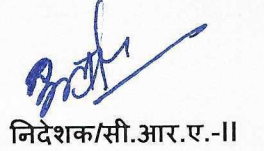 निदेशक/सी.आर.ए.-II